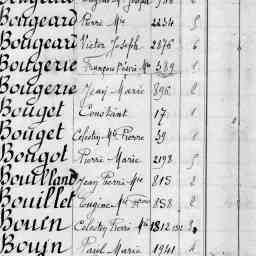 Bougeard Pierre Mie 2234 5
Bougeard Victor Joseph 2876 6
Bougerie François Désiré Mie 389 1
Bougerie Jean Marie 896 2
Bouget Constant 17 1
Bouget Célestin Mie Pierre 39 1
Bougot Pierre Marie 2198 5
Jean Pierre Mie 815 2
Bouillet Eugène 858 2
Bouin Célestin Pierre Mie 1812
Bouin Paul Marie 1941 4